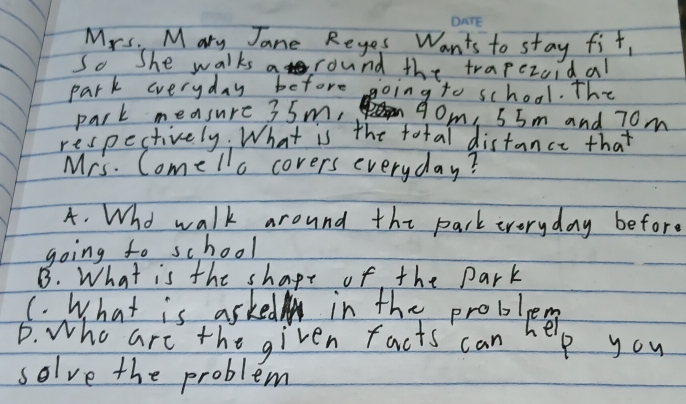 DATE
Mrs. Mary Jane Reyes Wants to stay fit,
so She walks around the trapezoidal
park everyday before going to school. The
park measure 35m, 90m, 55m and 70m
respectively. What is the total distance that
Mrs. Comello covers everyday?
A. Who walk around the park everyday before
going to school
B. What is the shape of the park
C. What is asked in the problem
D. Who are the given facts can help you
solve the problem